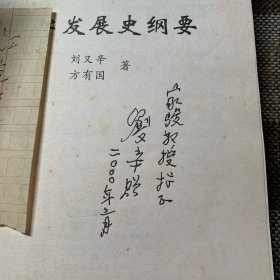 发展史纲要
刘又辛
方有国 著
家骏教授指正
刘又辛赠
二〇〇〇年二月